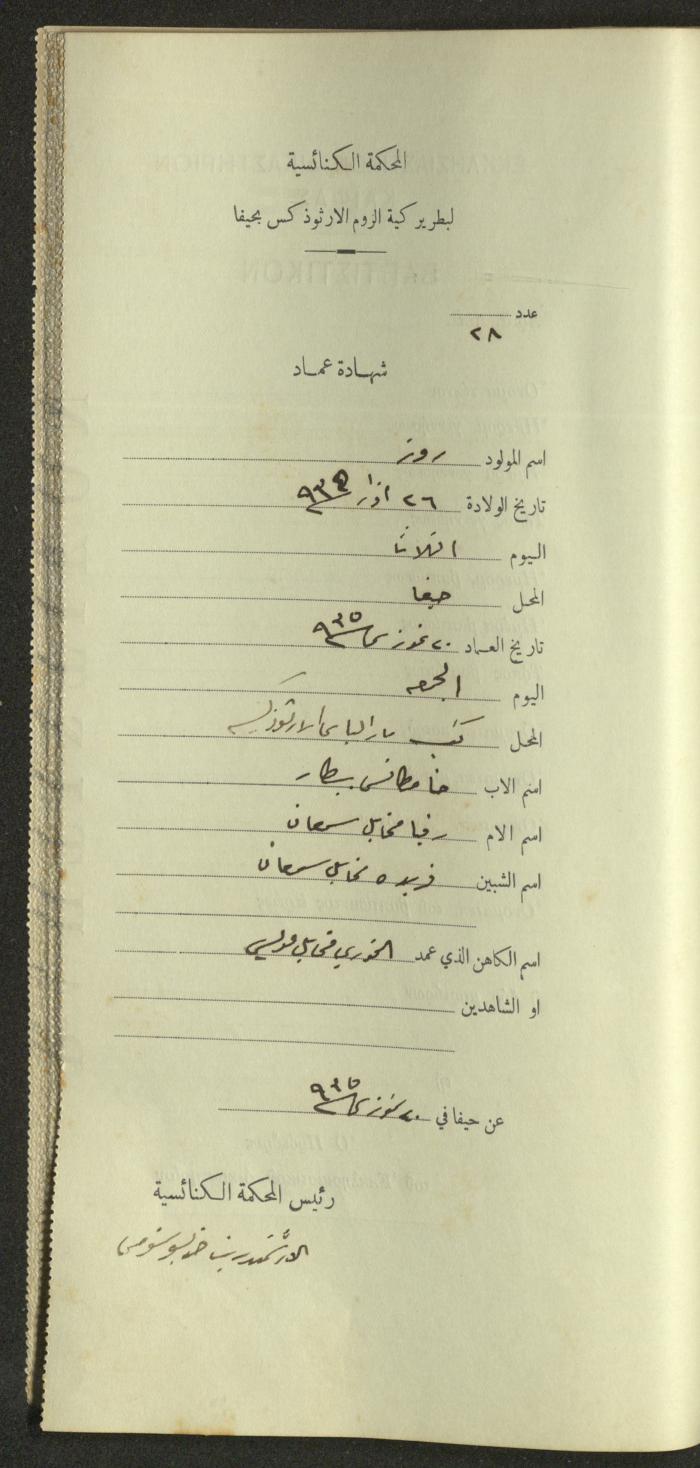 المحكمة الكنائسية
لبطريركية الروم الارثوذكس بحيفا
عدد ٢٨
شهادة عماد
اسم المولود روز
تاريخ الولادة ٢٦ اذار ٩٣٥
اليوم الثلاثا
المحل حيفا
تاريخ العماد ٢٠ تموز ٩٣٥
اليوم الجمعه
المحل
اسم الاب حنا بيطار
اسم الام مخايل سمعان
اسم الشبين فريده مخايل سمعان
اسم الكاهن الذي عمد الخوري مخايل
او الشاهدين
عن حيفا في ٢٠ تموز ٩٣٥
رئيس المحكمة الكنائسية